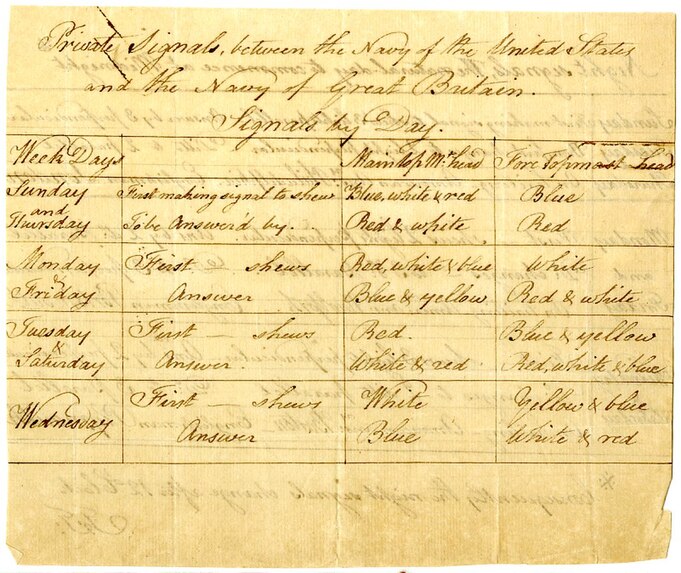 Private Signals, between the Navy of the United States
and the Navy of Great Britain.
Signals by Day.
Week Days Main top Mt head Fore Topmast head
Sunday and Thursday First making signal to shew Blue, white & red Blue
To be Answer'd by. Red & white Red
Monday & Friday First shews Red, white & blue White
Answer Blue & yellow Red & white
Tuesday & Saturday First — shews Red. Blue & yellow
Answer. White & red Red, white & blue
Wednesday First — shews White Yellow & blue
Answer Blue White & red